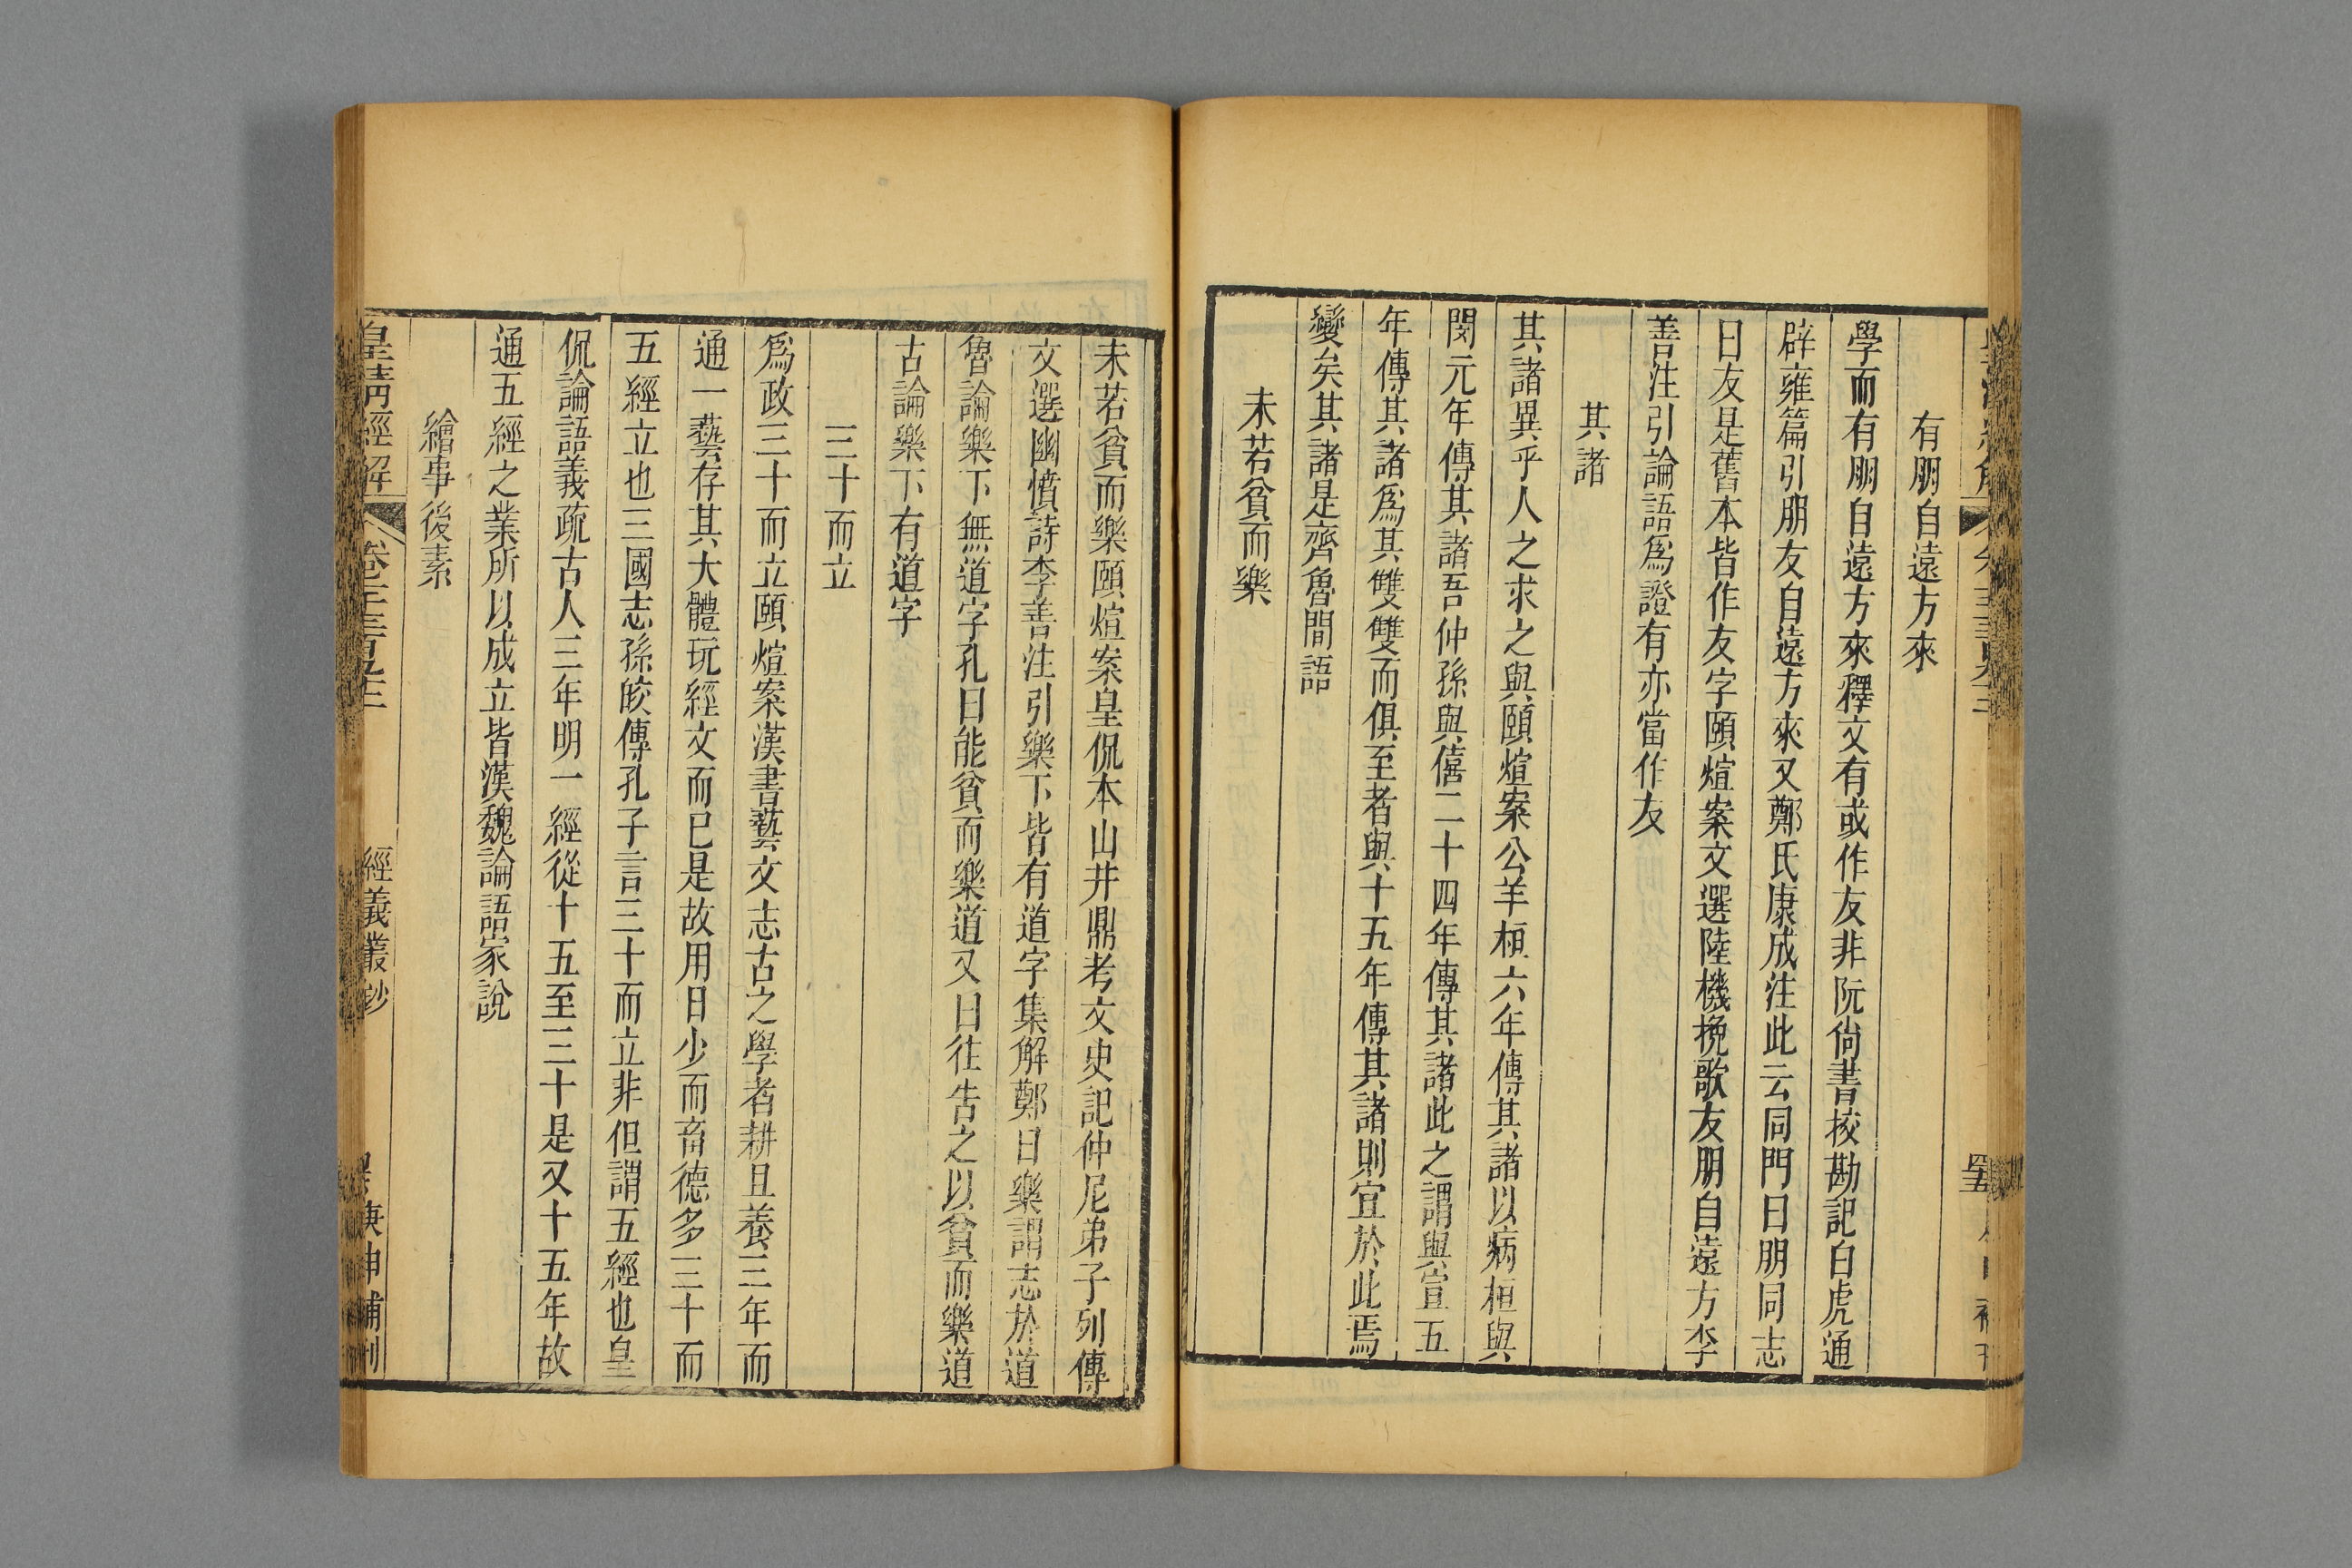 有朋自遠方來
學而有朋自遠方來釋文有或作友非阮尙書挍勘記白虎通
辟雍篇引朋友自遠方來又鄭氏康成注此云同門曰朋同志
曰友是舊本皆作友字頤煊案文選陸機挽歌友朋自遠方李
善注引論語爲證有亦當作友
其諸
其諸異乎人之求之與頤煊案公羊桓六年傳其諸以病桓與
閔元年傳其諸吾仲孫與僖二十四年傳其諸此之謂與宣五
年傳其諸爲其雙雙而俱至者與十五年傳其諸則宜於此焉
變矣其諸是齊魯間語
未若貧而樂
未若貧而樂頤煊案皇侃本山井鼎考文史記仲尼弟子列傳
文選幽憤詩李善注引樂下皆有道字集解鄭曰樂謂志於道
魯論樂下無道字孔曰能貧而樂道又曰往告之以貧而樂道
古論樂下有道字
三十而立
爲政三十而立頤煊案漢書藝文志古之學者耕且養三年而
通一藝存其大體玩經文而已是故用日少而畜德多三十而
五經立也三國志孫皎傳孔子言三十而立非但謂五經也皇
侃論語義疏古人三年明一經從十五至三十是又十五年故
通五經之業所以成立皆漢魏論語家說
繪事後素
皇清經解
經義叢鈔
庚申補刊